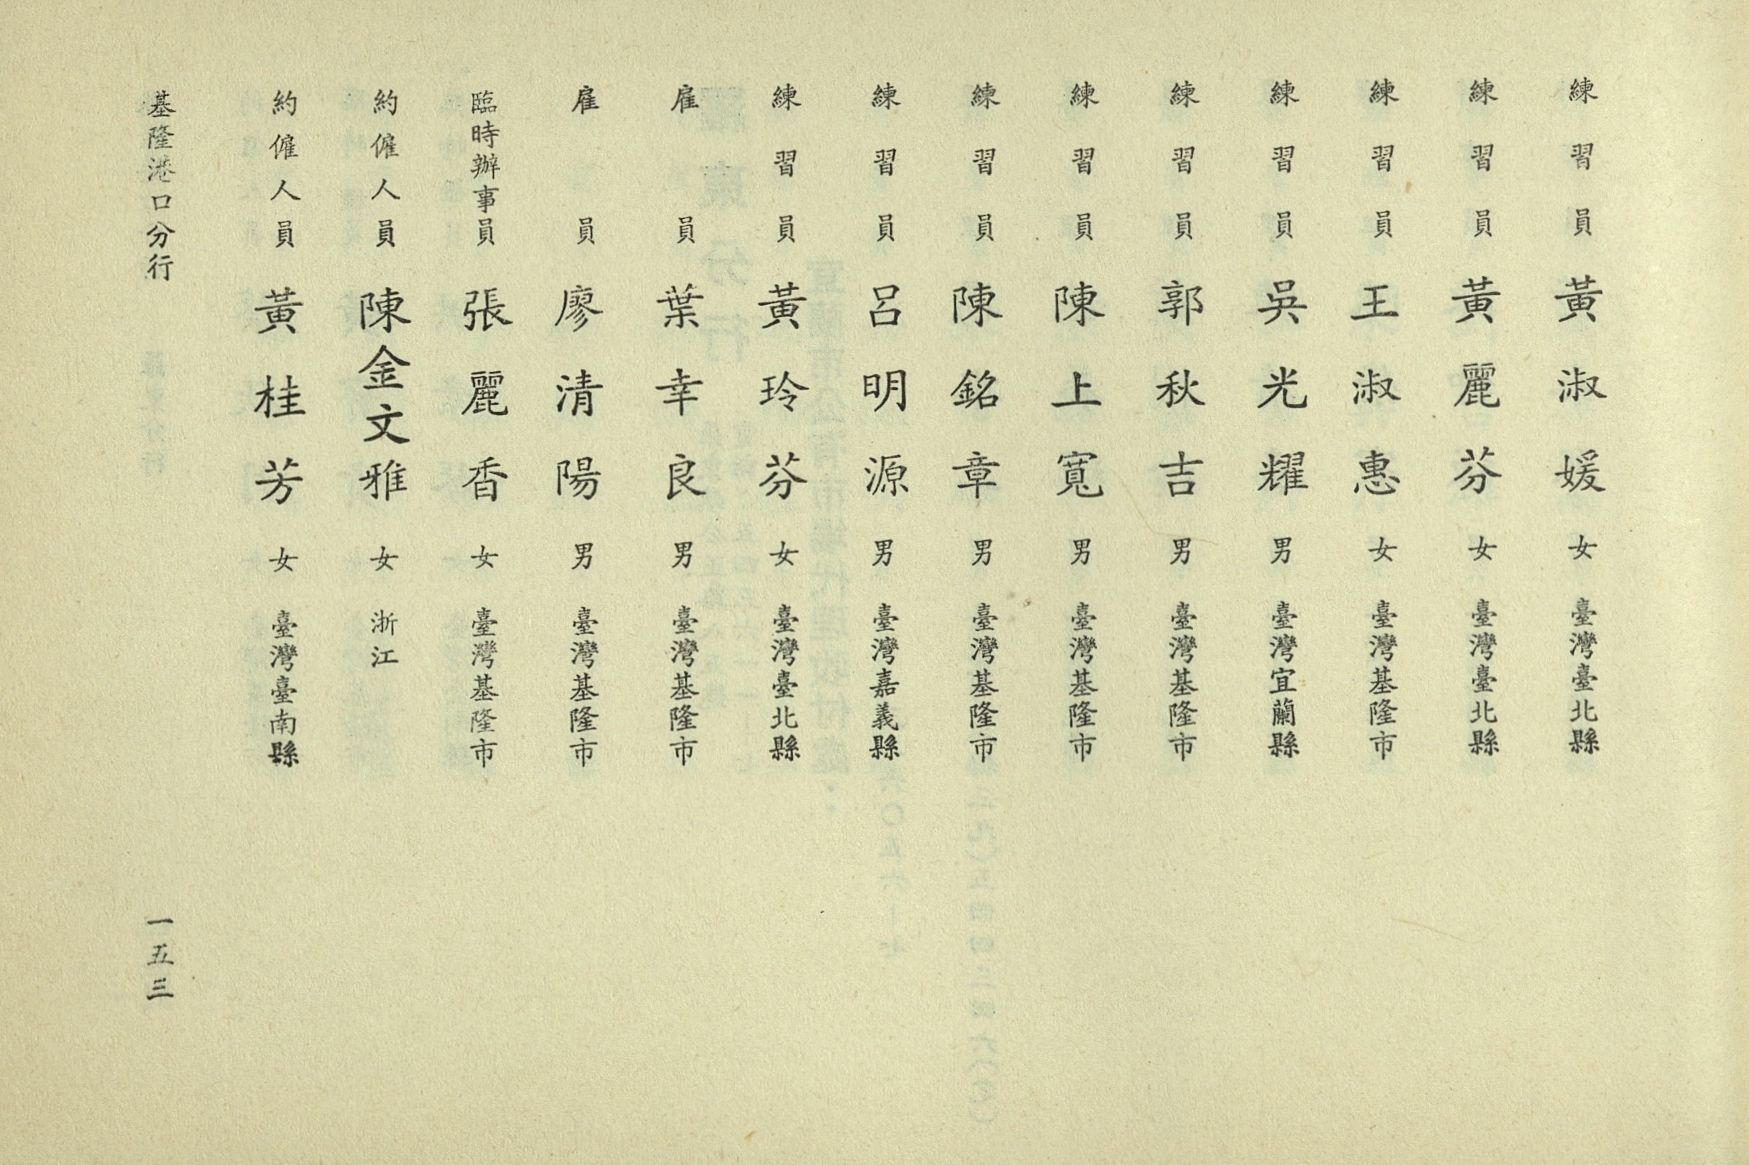 練習員 黃淑媛 女 臺灣臺北縣
練習員 黃麗芬 女 臺灣臺北縣
練習員 王淑惠 女 臺灣基隆市
練習員 吳光耀 男 臺灣宜蘭縣
練習員 郭秋吉 男 臺灣基隆市
練習員 陳上寬 男 臺灣基隆市
練習員 陳銘章 男 臺灣基隆市
練習員 呂明源 男 臺灣嘉義縣
練習員 黃玲芬 女 臺灣臺北縣
雇員 葉幸良 男 臺灣基隆市
雇員 廖清陽 男 臺灣基隆市
臨時辦事員 張麗香 女 臺灣基隆市
約僱人員 陳金文雅 女 浙江
約僱人員 黃桂芳 女 臺灣臺南縣
基隆港口分行 一五三